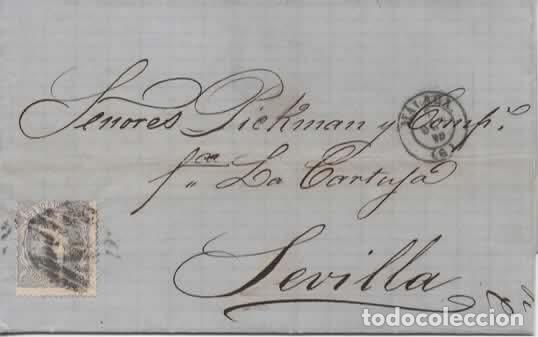 Señores Pickman y Compª.
fca La Cartuja
Sevilla
MALAGA
(6)
todocoleccion.net